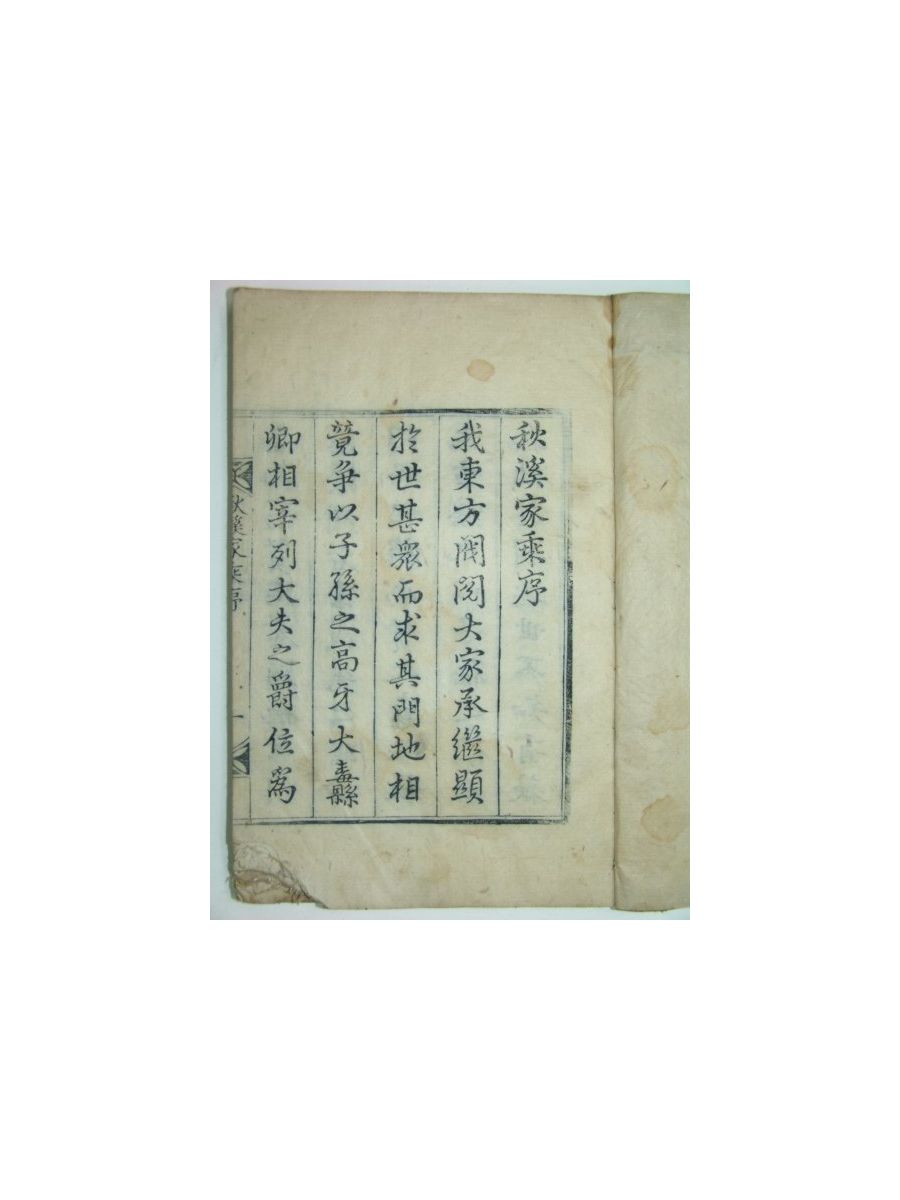 秋溪家乘序
我東方閥閱大家承繼顯
於世甚衆而求其門地相
競爭以子孫之高牙大纛縣
卿相宰列大夫之爵位爲
秋溪家乘序
一